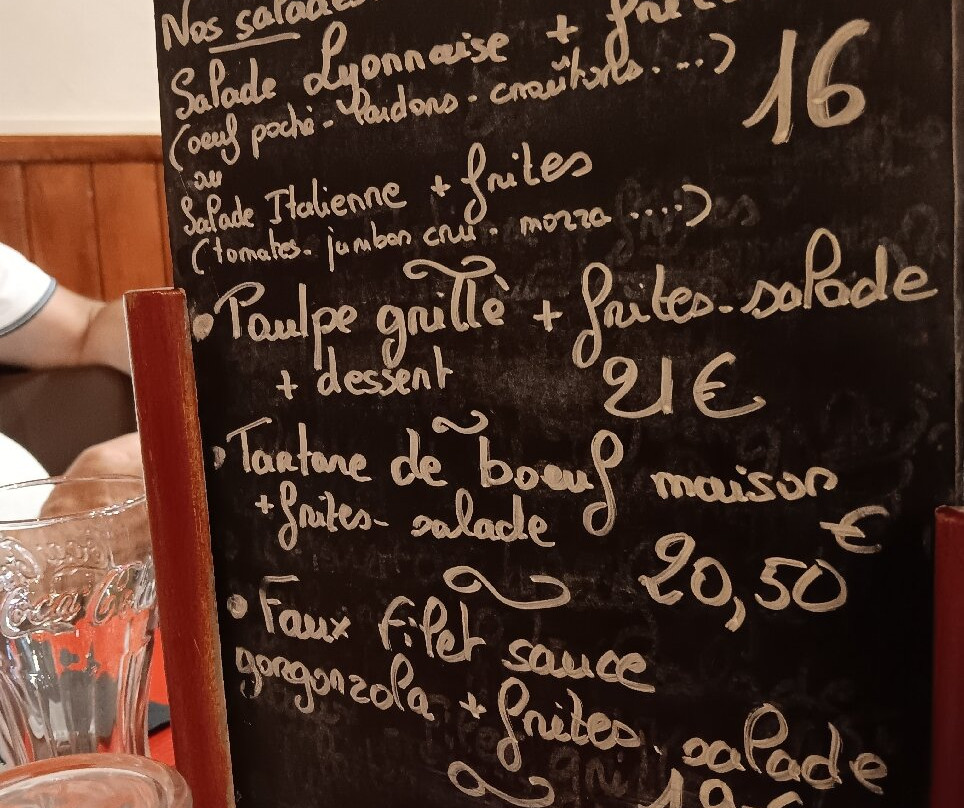 Nos salades
Salade Lyonnaise + frites
(oeuf poché - lardons - croûtons. ...) 16
ou
Salade Italienne + frites
(tomates - jambon cru - mozza ....)
• Poulpe grillè + frites - salade
+ dessert 21€
• Tartare de boeuf maison
+ frites - salade 20,50 €
• Faux filet sauce
gorgonzola + frites - salade
Coca-Cola